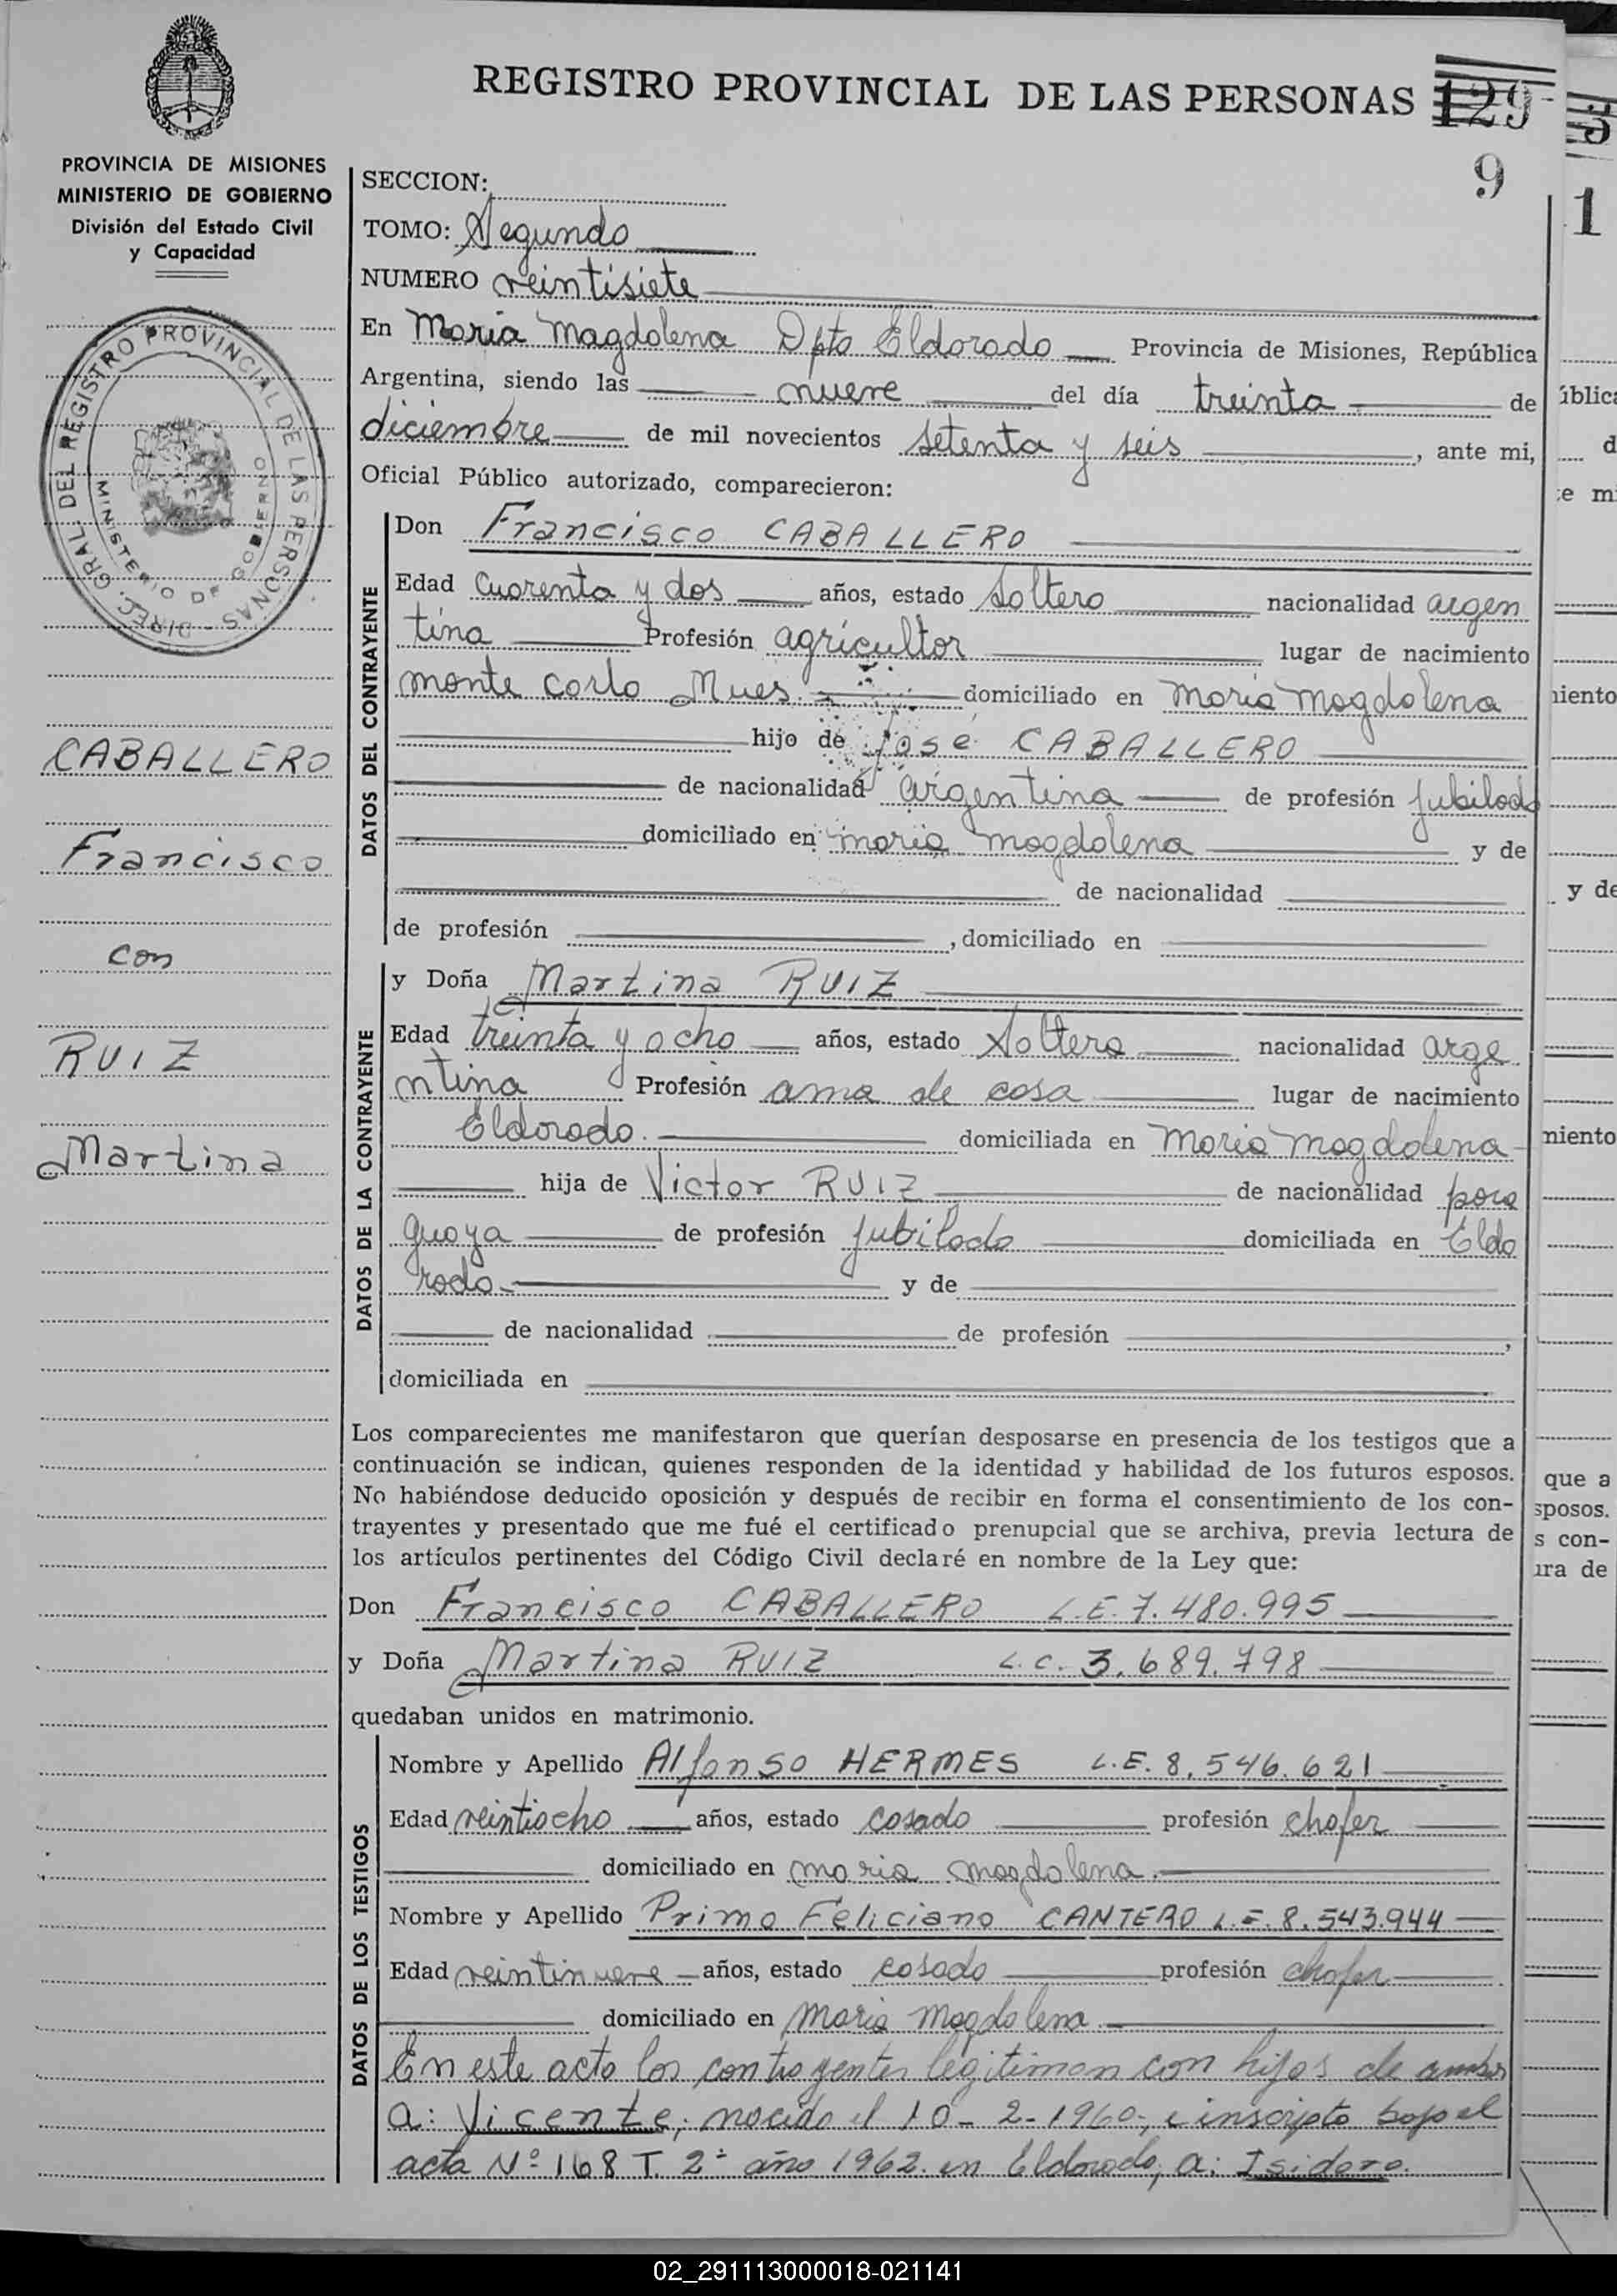 REGISTRO PROVINCIAL DE LAS PERSONAS 129
9
PROVINCIA DE MISIONES
MINISTERIO DE GOBIERNO
División del Estado Civil
y Capacidad
DIREC. GRAL. DEL REGISTRO PROVINCIAL DE LAS PERSONAS
MINISTERIO DE GOBIERNO
CABALLERO
Francisco
con
RUIZ
Martina
SECCION:
TOMO: Segundo
NUMERO veintisiete
En Maria Magdalena Dpto Eldorado Provincia de Misiones, República
Argentina, siendo las nueve del día treinta de
diciembre de mil novecientos setenta y seis, ante mi,
Oficial Público autorizado, comparecieron:
DATOS DEL CONTRAYENTE
Don Francisco CABALLERO
Edad cuarenta y dos años, estado soltero nacionalidad argen
tina Profesión agricultor lugar de nacimiento
monte carlo Mnes. domiciliado en maria magdalena
hijo de José CABALLERO
de nacionalidad argentina de profesión jubilado
domiciliado en maria magdalena y de
de nacionalidad
de profesión , domiciliado en
DATOS DE LA CONTRAYENTE
y Doña Martina RUIZ
Edad treinta y ocho años, estado soltera nacionalidad arge
ntina Profesión ama de casa lugar de nacimiento
Eldorado. domiciliada en maria magdalena
hija de Victor RUIZ de nacionalidad para
guaya de profesión jubilado domiciliada en Eldo
rado y de
de nacionalidad de profesión ,
domiciliada en
Los comparecientes me manifestaron que querían desposarse en presencia de los testigos que a
continuación se indican, quienes responden de la identidad y habilidad de los futuros esposos.
No habiéndose deducido oposición y después de recibir en forma el consentimiento de los con-
trayentes y presentado que me fué el certificado prenupcial que se archiva, previa lectura de
los artículos pertinentes del Código Civil declaré en nombre de la Ley que:
Don Francisco CABALLERO L.E. 7.480.995
y Doña Martina RUIZ L.C. 3.689.798
quedaban unidos en matrimonio.
DATOS DE LOS TESTIGOS
Nombre y Apellido Alfonso HERMES L.E. 8.546.621
Edad veintiocho años, estado casado profesión chofer
domiciliado en maria magdalena.
Nombre y Apellido Primo Feliciano CANTERO L.E. 8.543.944
Edad veintinueve años, estado casado profesión chofer
domiciliado en maria magdalena
En este acto los contrayentes legitiman con hijos de ambos
a: Vicente, nacido el 10-2-1960, e inscripto bajo el
acta Nº 168 T. 2º año 1962 en Eldorado, a: Isidoro.
3
1
ública
d
te mi
niento
y de
niento
que a
sposos.
s con-
ura de
02_291113000018-021141